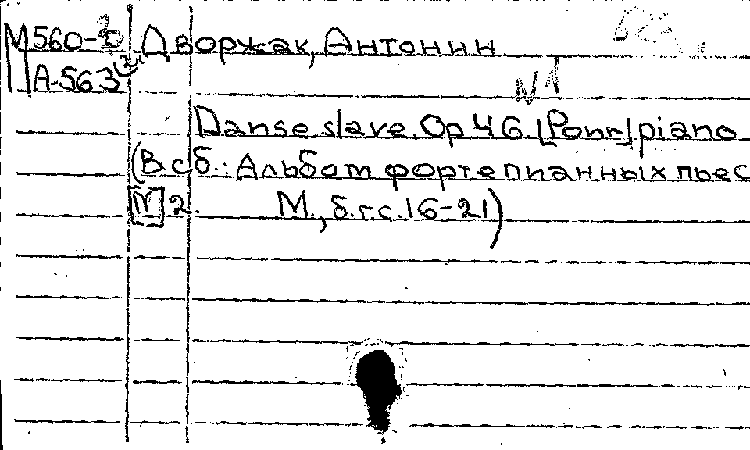 М560-2 Дворжак, Антонин
А-563(2)
N1
Danse slave. Op 46. [Pour] piano
(В сб.: Альбом фортепианных пьес
N 2. М., б.г. с. 16-21)